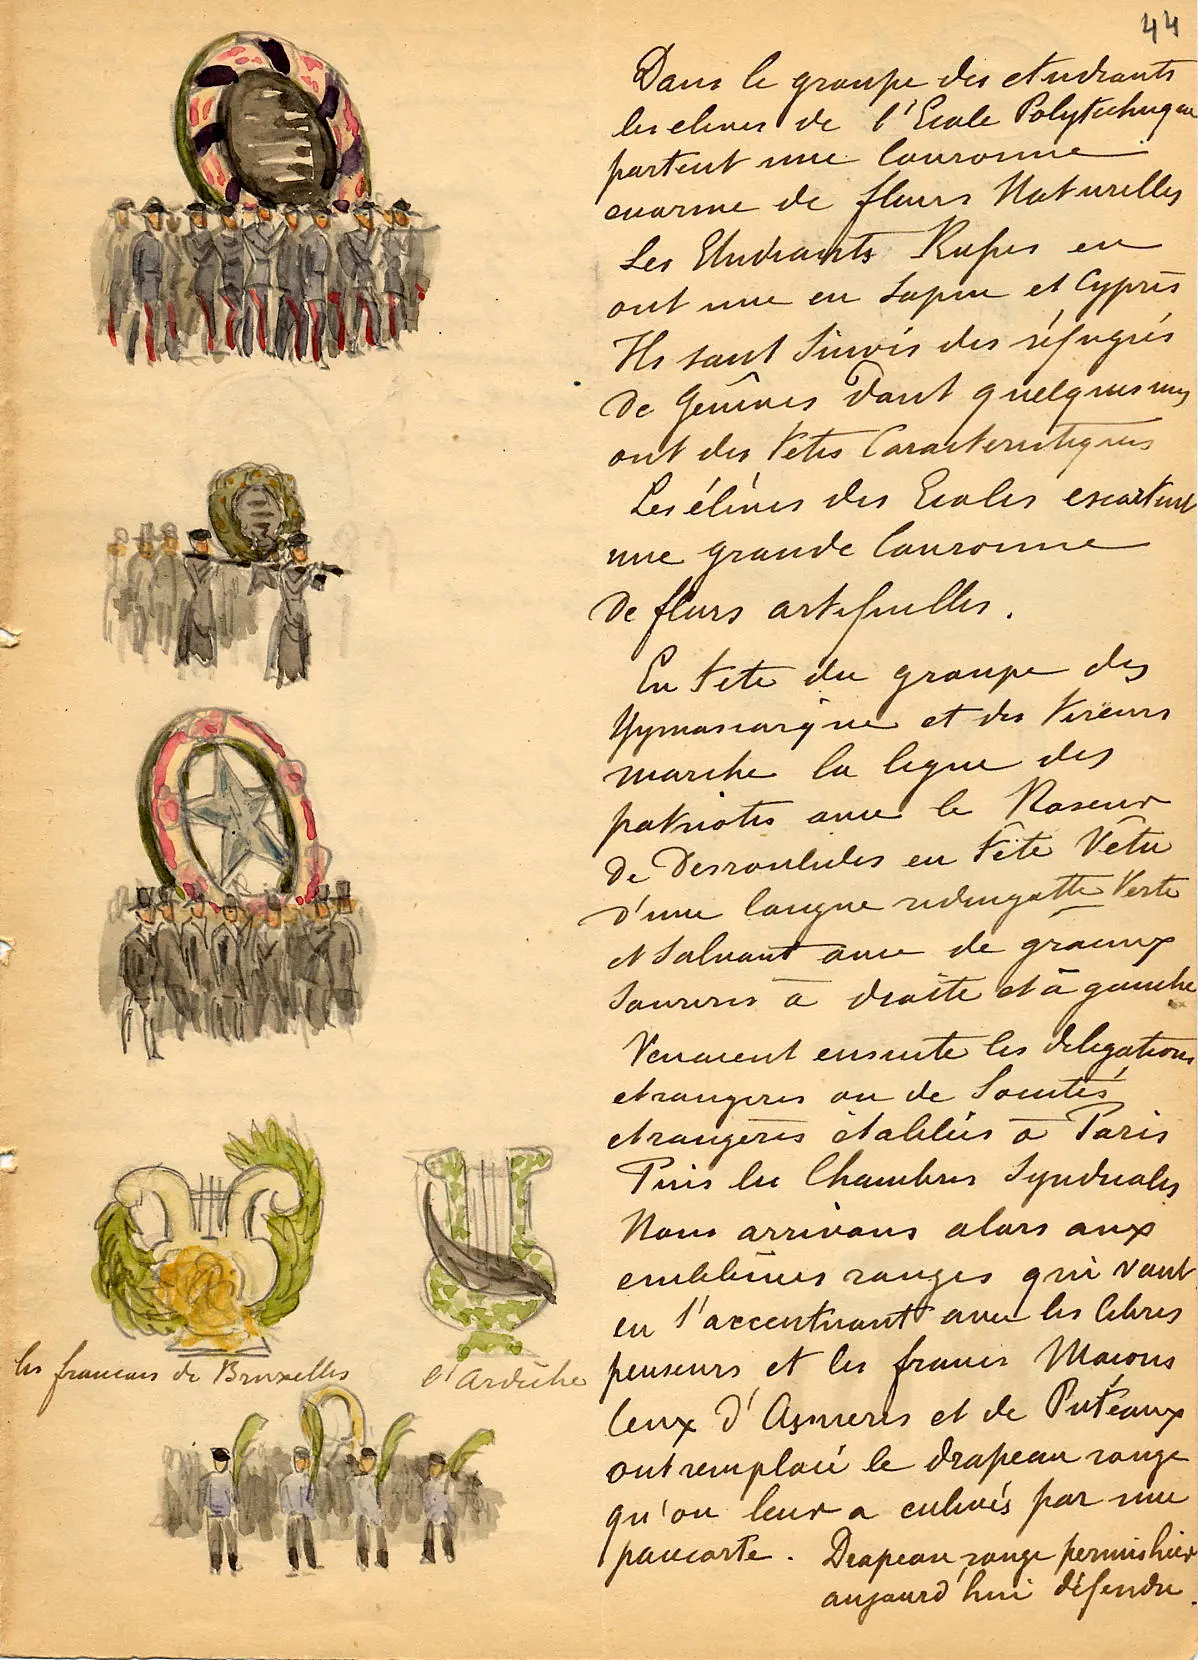 44
Dans le groupe des etudiants
les eleves de l'Ecole Polytechnique
portent une Couronne
enorme de fleurs Naturelles
Les Etudiants Rufses en
ont une en Sapin et Cyprès
Ils sont Suivis des réfugiés
de Genêves dont quelques uns
ont des têtes Caracteristiques
Les éléves des Ecoles escortent
une grande Couronne
de fleurs artificielles.
En tete du groupe des
et des tireurs
marche la ligue des
patriotes avec le Raseur
de en tête Vêtu
d'une longue redingotte Verte
et Saluant avec de gracieux
Sourires à droite et à gauche
Venaient ensuite les délégations
etrangeres ou de Sociétés
etrangères établies à Paris
Puis les Chambres Syndicales
Nous arrivons alors aux
emblêmes rouges qui vont
en s'accentuant avec les libres
penseurs et les francs Macons
Ceux d'Asnieres et de Puteaux
ont remplacé le drapeau rouge
qu'on leur a enlevés par une
pancarte. Drapeau rouge permis hier
aujourd'hui défendu.
les francais de Bruxelles
l'Ardèche